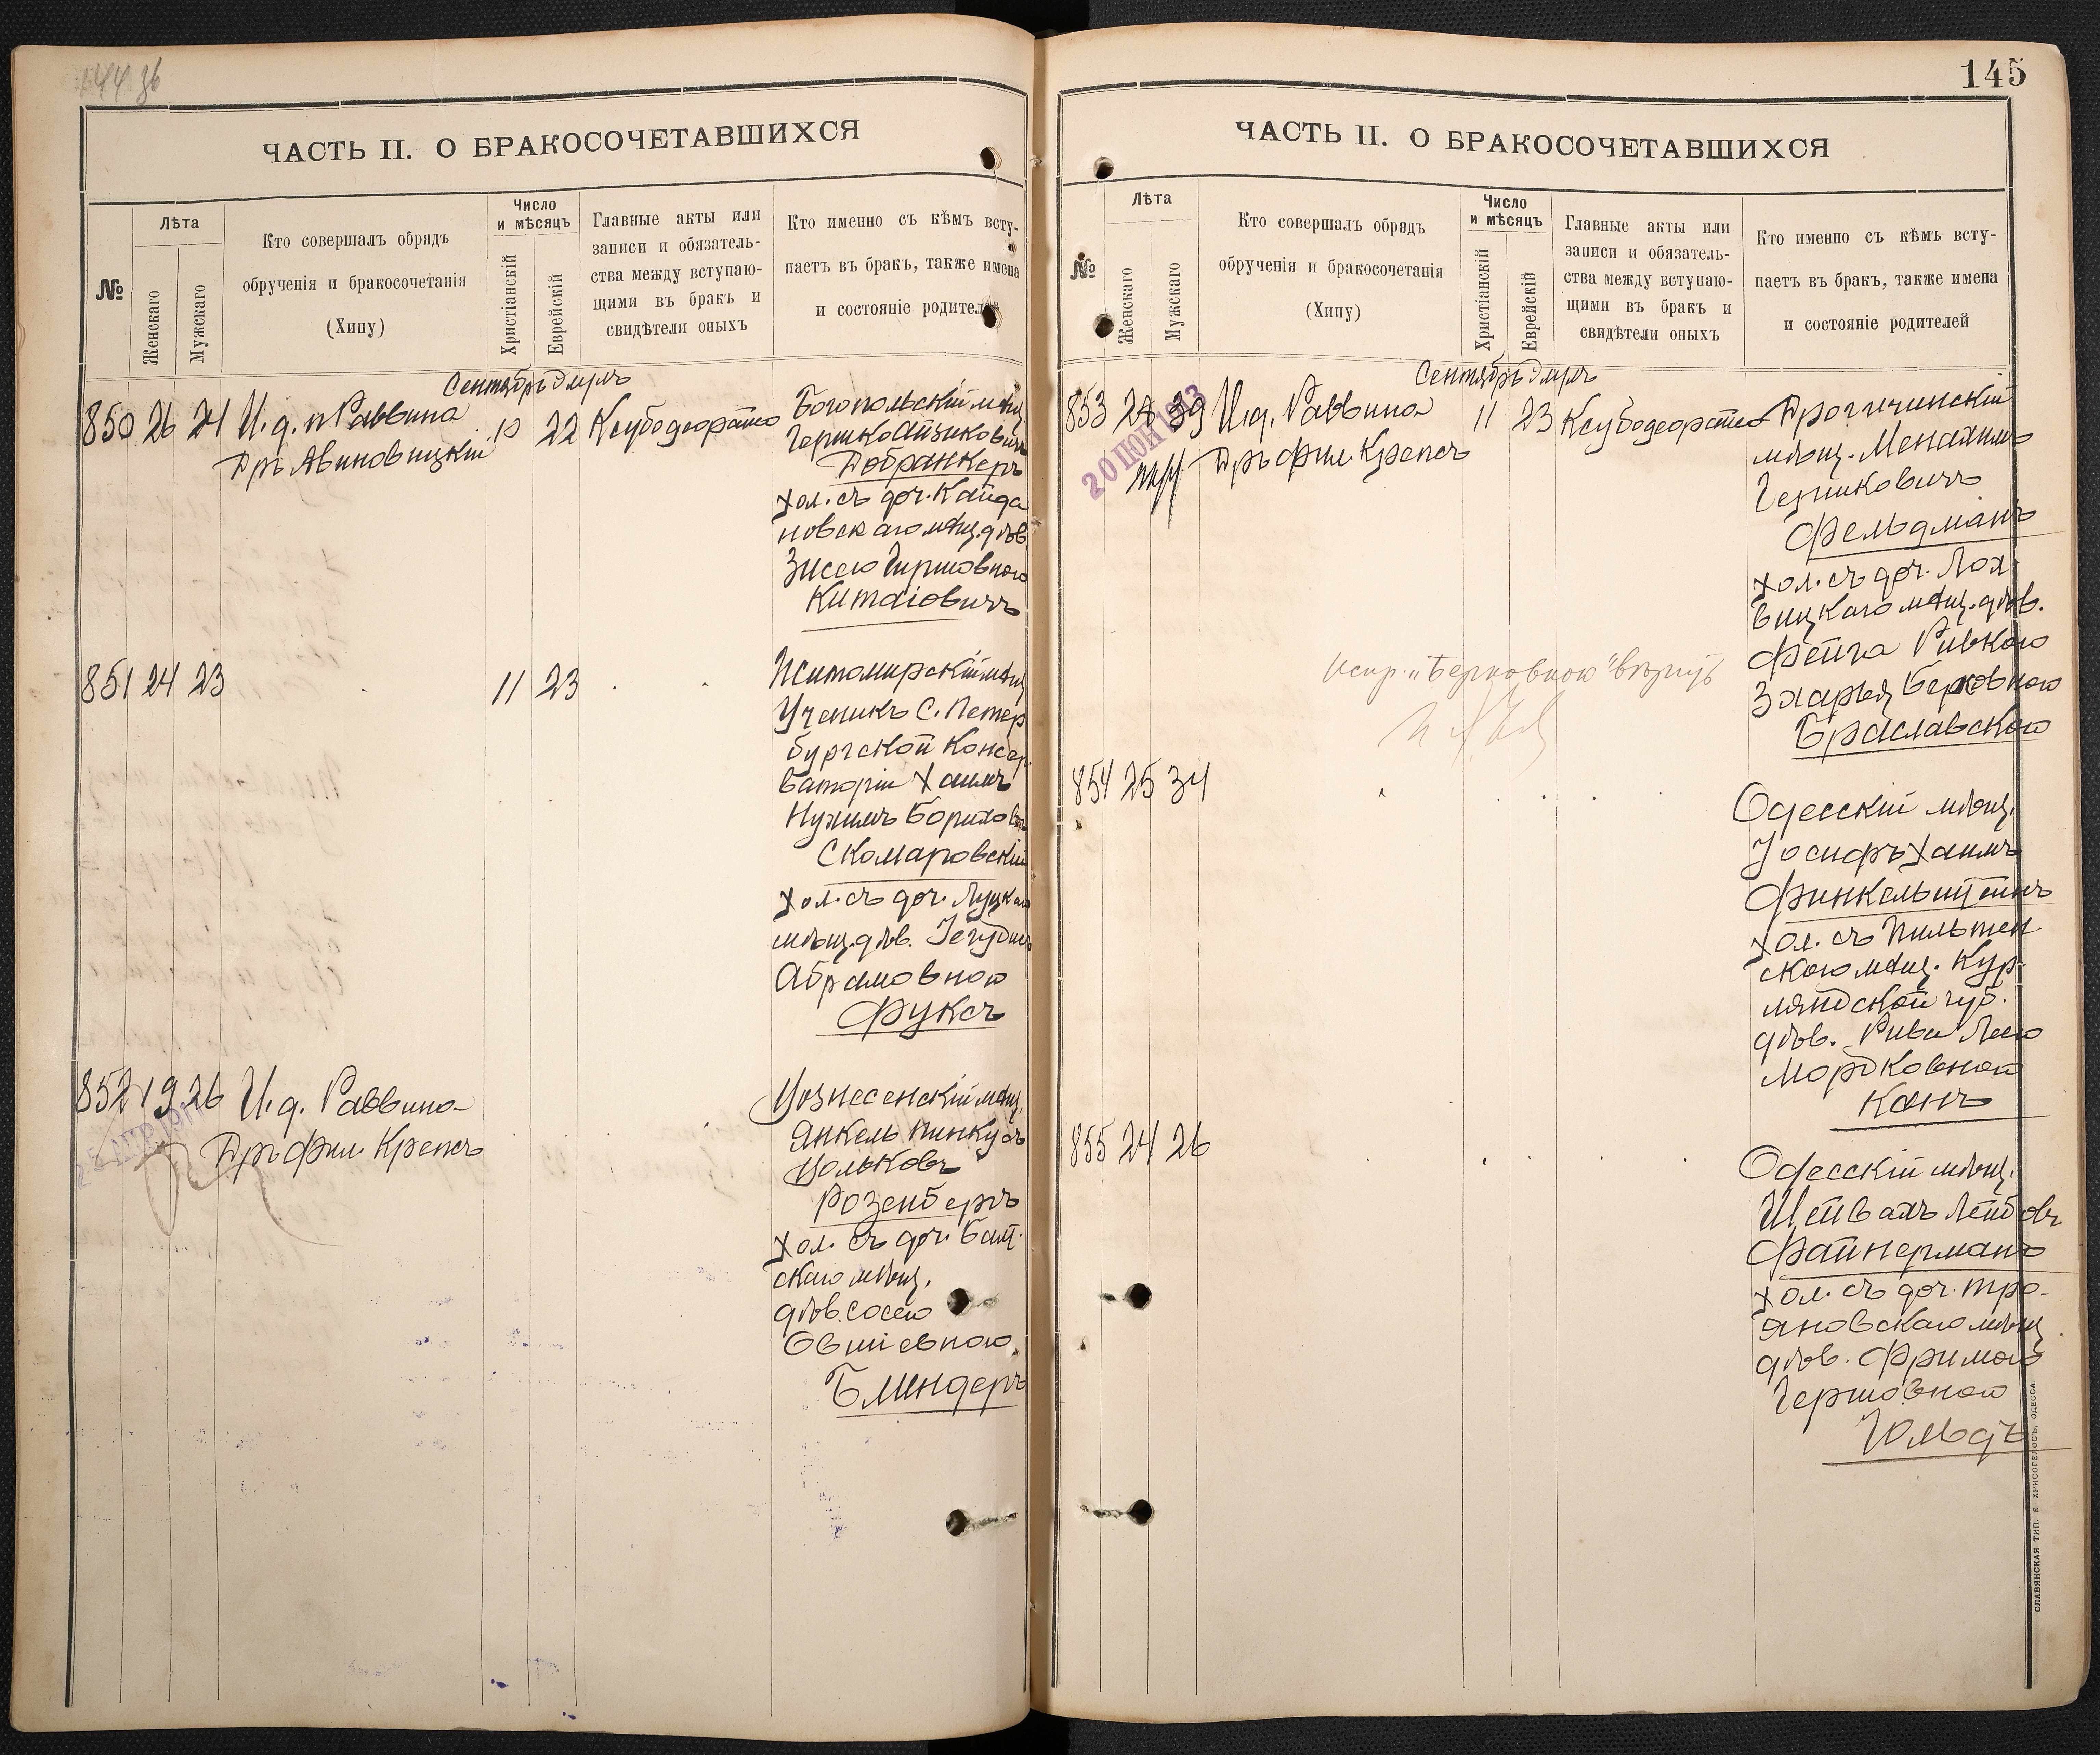 144 зб
ЧАСТЬ II. О БРАКОСОЧЕТАВШИХСЯ
№
Лѣта
Женскаго
Мужскаго
Кто совершалъ обрядъ
обрученія и бракосочетанія
(Хипу)
Число
и мѣсяцъ
Христіанскій
Еврейскій
Главные акты или
записи и обязатель-
ства между вступаю-
щими въ бракъ и
свидѣтели оныхъ
Кто именно съ кѣмъ всту-
паетъ въ бракъ, также имена
и состояніе родителей
Сентябрь Элулъ
850 26 24 И. д. п Раввина 10 22 Ксубодеорато
Дръ Явиновицкій
Богопольскій мѣщ.
Гершко Айзиковичъ
Добранкеръ
хол. съ доч. Кайда
новскаго мѣщ. дѣв.
Зиссею Гиршовною
Китаіовичъ
851 24 23 11 23
Житомирскій мѣщ
Ученикъ С. Петер
бургской Консер
ваторіи Хаимъ
Нухимъ Борухов
Скомаровскій
хол. съ доч. Луцкаго
мѣщ. дѣв. Іегудисъ
Абрамовною
Фуксъ
852 19 26 И. д. Раввина
Дръ фил. Крепсъ
Вознесенскій мѣщ.
Янкель Пинкусъ
Вольковъ
Розенбергъ
хол. съ доч. Балт-
скаго мѣщ.
дѣв. Сосею
Овшіевною
Блиндеръ
145
ЧАСТЬ II. О БРАКОСОЧЕТАВШИХСЯ
№
Лѣта
Женскаго
Мужскаго
Кто совершалъ обрядъ
обрученія и бракосочетанія
(Хипу)
Число
и мѣсяцъ
Христіанскій
Еврейскій
Главные акты или
записи и обязатель-
ства между вступаю-
щими въ бракъ и
свидѣтели оныхъ
Кто именно съ кѣмъ всту-
паетъ въ бракъ, также имена
и состояніе родителей
Сентябрь Элулъ
853 39 И. д. Раввина 11 23 Ксубодеорато
Дръ фил. Крепсъ
20 ІЮН 1913
Дрогичинскій
мѣщ. Менахимъ
Гершковичъ
Фельдманъ
хол. съ доч. Лох
вицкаго мѣщ. дѣв.
Фейга Ривкою
Зларья Берковною
Браславскою
испр. "Берковною" вѣрить
854 25 34
Одесскій мѣщ.
Іосифъ Хаимъ
Финкельштейнъ
хол. съ Пильтен
скою мѣщ. Кур-
ляндской губ.
дѣв. Рива Леею
Мордковною
Канъ
855 24 26
Одесскій мѣщ.
Шейвахъ Лейбовъ
Файнерманъ
хол. съ доч. Тро-
яновскаго мѣщ
дѣв. Фримою
Гершовною
Гольдъ
СЛАВЯНСКАЯ ТИП. Е. ХРИСОГЕЛОСЪ, ОДЕССА